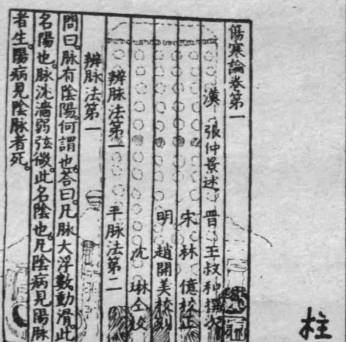 傷寒論卷第一
漢 張仲景述 晉 王叔和撰次
宋 林 億校正
明 趙開美校刻
沈 琳仝校
辨脉法第一 平脉法第二
辨脉法第一
問曰。脉有陰陽。何謂也。答曰。凡脉大浮數動滑。此
名陽也。脉沈濇弱弦微。此名陰也。凡陰病見陽脉
者生。陽病見陰脉者死。
柱